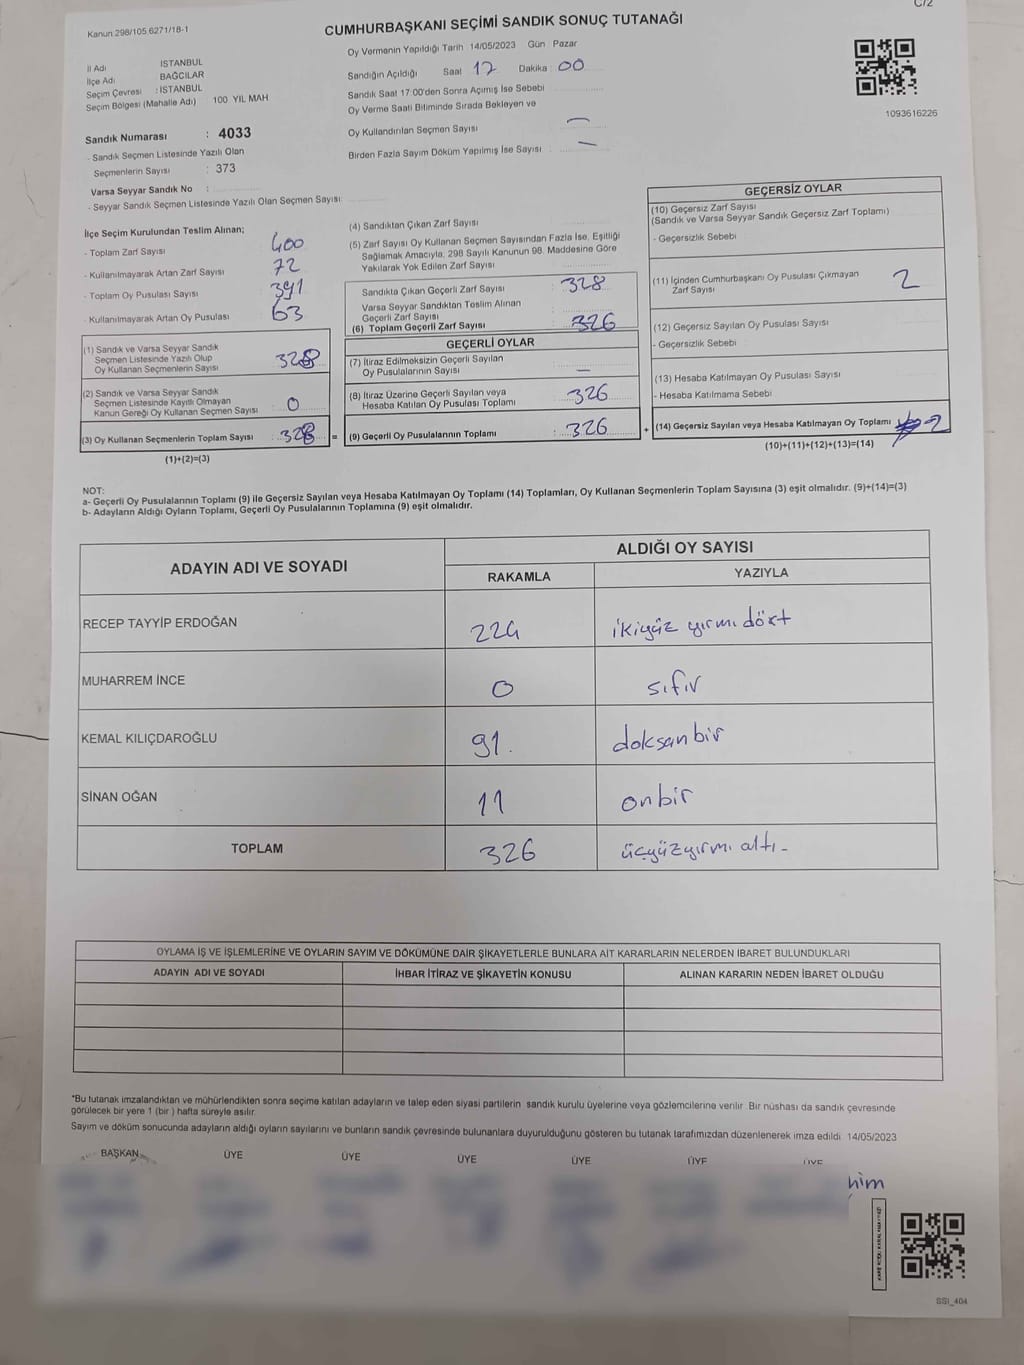 C/2
Kanun 298/105,6271/18-1
CUMHURBAŞKANI SEÇİMİ SANDIK SONUÇ TUTANAĞI
Oy Vermenin Yapıldığı Tarih 14/05/2023 Gün Pazar
İl Adı İSTANBUL
İlçe Adı BAĞCILAR
Seçim Çevresi : İSTANBUL
Seçim Bölgesi (Mahalle Adı) 100 YIL MAH
Sandığın Açıldığı Saat 17 Dakika : 00
Sandık Saat 17:00'den Sonra Açılmış İse Sebebi
Oy Verme Saati Bitiminde Sırada Bekleyen ve
Oy Kullandırılan Seçmen Sayısı —
Birden Fazla Sayım Döküm Yapılmış İse Sayısı : —
1093616226
Sandık Numarası : 4033
- Sandık Seçmen Listesinde Yazılı Olan
Seçmenlerin Sayısı : 373
Varsa Seyyar Sandık No :
- Seyyar Sandık Seçmen Listesinde Yazılı Olan Seçmen Sayısı:
İlçe Seçim Kurulundan Teslim Alınan;
- Toplam Zarf Sayısı 400
- Kullanılmayarak Artan Zarf Sayısı 72
- Toplam Oy Pusulası Sayısı 391
- Kullanılmayarak Artan Oy Pusulası 63
(1) Sandık ve Varsa Seyyar Sandık
Seçmen Listesinde Yazılı Olup
Oy Kullanan Seçmenlerin Sayısı 328
(2) Sandık ve Varsa Seyyar Sandık
Seçmen Listesinde Kayıtlı Olmayan
Kanun Gereği Oy Kullanan Seçmen Sayısı 0
(3) Oy Kullanan Seçmenlerin Toplam Sayısı 328 =
(1)+(2)=(3)
(4) Sandıktan Çıkan Zarf Sayısı
(5) Zarf Sayısı Oy Kullanan Seçmen Sayısından Fazla İse, Eşitliği
Sağlamak Amacıyla; 298 Sayılı Kanunun 98. Maddesine Göre
Yakılarak Yok Edilen Zarf Sayısı
Sandıkta Çıkan Geçerli Zarf Sayısı : 328
Varsa Seyyar Sandıktan Teslim Alınan
Geçerli Zarf Sayısı
(6) Toplam Geçerli Zarf Sayısı : 326
GEÇERLİ OYLAR
(7) İtiraz Edilmeksizin Geçerli Sayılan
Oy Pusulalarının Sayısı : —
(8) İtiraz Üzerine Geçerli Sayılan veya
Hesaba Katılan Oy Pusulası Toplamı 326
(9) Geçerli Oy Pusulalarının Toplamı : 326 +
GEÇERSİZ OYLAR
(10) Geçersiz Zarf Sayısı
(Sandık ve Varsa Seyyar Sandık Geçersiz Zarf Toplamı)
- Geçersizlik Sebebi
(11) İçinden Cumhurbaşkanı Oy Pusulası Çıkmayan
Zarf Sayısı 2
(12) Geçersiz Sayılan Oy Pusulası Sayısı
- Geçersizlik Sebebi
(13) Hesaba Katılmayan Oy Pusulası Sayısı
- Hesaba Katılmama Sebebi
(14) Geçersiz Sayılan veya Hesaba Katılmayan Oy Toplamı 2
(10)+(11)+(12)+(13)=(14)
NOT:
a- Geçerli Oy Pusulalarının Toplamı (9) ile Geçersiz Sayılan veya Hesaba Katılmayan Oy Toplamı (14) Toplamları, Oy Kullanan Seçmenlerin Toplam Sayısına (3) eşit olmalıdır. (9)+(14)=(3)
b- Adayların Aldığı Oyların Toplamı, Geçerli Oy Pusulalarının Toplamına (9) eşit olmalıdır.
ADAYIN ADI VE SOYADI ALDIĞI OY SAYISI
RAKAMLA YAZIYLA
RECEP TAYYİP ERDOĞAN 224 ikiyüz yirmi dört
MUHARREM İNCE 0 sıfır
KEMAL KILIÇDAROĞLU 91. doksanbir
SİNAN OĞAN 11 onbir
TOPLAM 326 üçyüzyirmi altı -
OYLAMA İŞ VE İŞLEMLERİNE VE OYLARIN SAYIM VE DÖKÜMÜNE DAİR ŞİKAYETLERLE BUNLARA AİT KARARLARIN NELERDEN İBARET BULUNDUKLARI
ADAYIN ADI VE SOYADI İHBAR İTİRAZ VE ŞİKAYETİN KONUSU ALINAN KARARIN NEDEN İBARET OLDUĞU
*Bu tutanak imzalandıktan ve mühürlendikten sonra seçime katılan adayların ve talep eden siyasi partilerin sandık kurulu üyelerine veya gözlemcilerine verilir. Bir nüshası da sandık çevresinde
görülecek bir yere 1 (bir ) hafta süreyle asılır.
Sayım ve döküm sonucunda adayların aldığı oyların sayılarını ve bunların sandık çevresinde bulunanlara duyurulduğunu gösteren bu tutanak tarafımızdan düzenlenerek imza edildi 14/05/2023
BAŞKAN ÜYE ÜYE ÜYE ÜYE ÜYE ÜYE
him
SSI_404